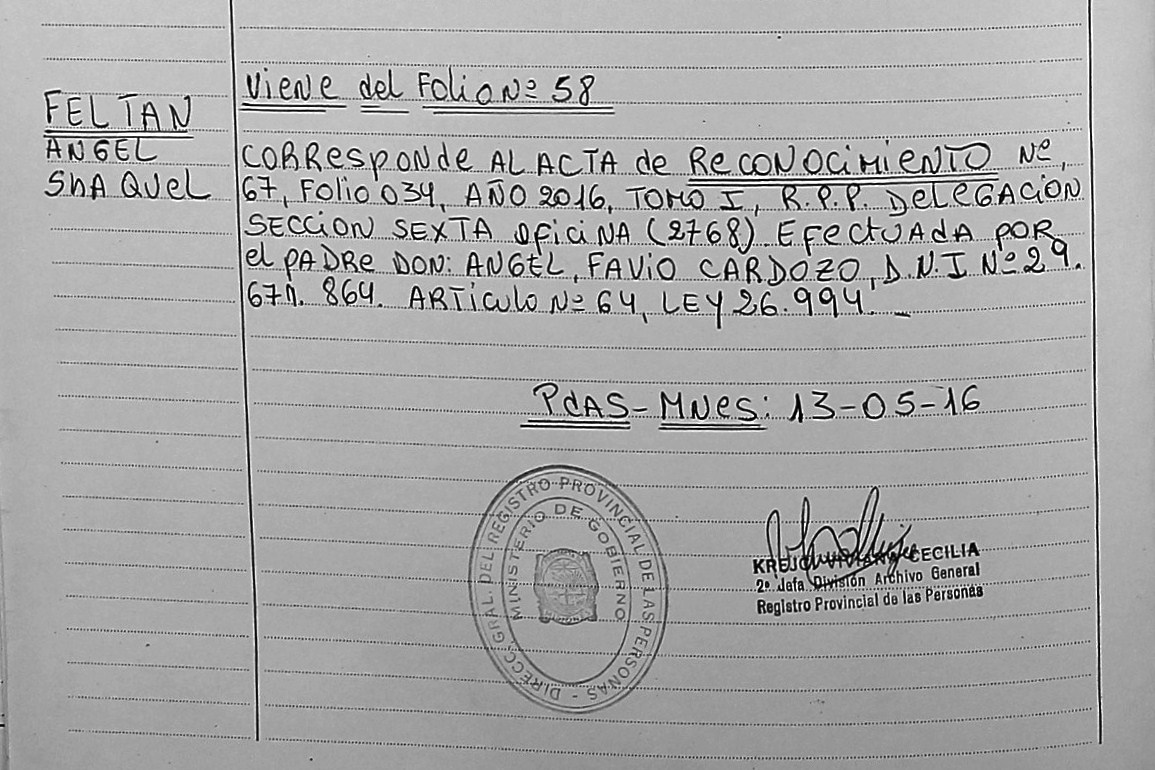 Viene del Folio Nº 58
FELTAN
ANGEL
SHAQUEL
CORResponde AL ACTA de ReCONOCIMIeNTO Nº,
67, Folio 034, AÑO 2016, TOMO I, R.P.P. DeLeGACION
SECCION SEXTA OFICINA (2768) EFectUAdA POR
el PADRe DON: ANGEL, FAVIO CARDOZO, D.N.I Nº 29.
671. 864. ARTiculo Nº 64, LEY 26.994._
PdAS-MNes: 13-05-16
DIRECC. GRAL. DEL REGISTRO PROVINCIAL DE LAS PERSONAS -
MINISTERIO DE GOBIERNO
CECILIA
2ª Jefa División Archivo General
Registro Provincial de las Personas